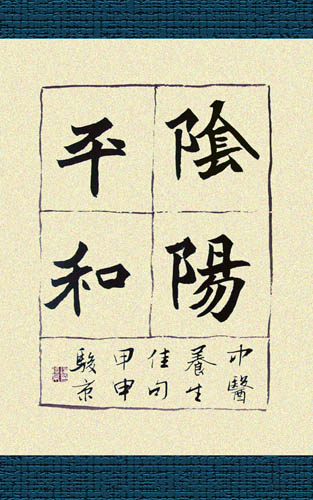 陰陽
平和
中醫
養生
佳句
甲申
駿京